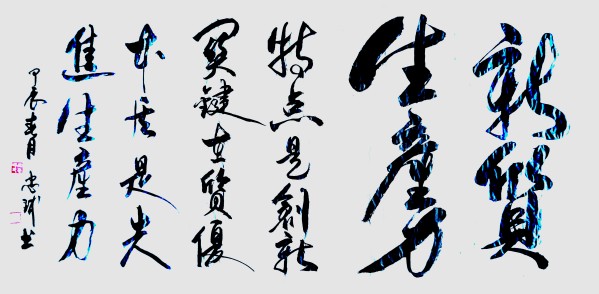 新質
生產力
特点是創新
關鍵在質優
本质是先
進生產力
甲辰春月